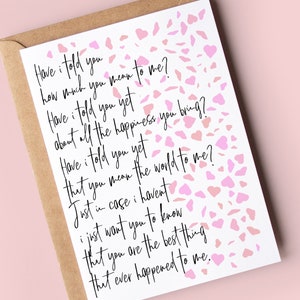 Have i told you
how much you mean to me?
Have i told you yet
about all the happiness you bring?
Have i told you yet
that you mean the world to me?
Just in case i havent
i just want you to know
that you are the best thing
that ever happened to me.